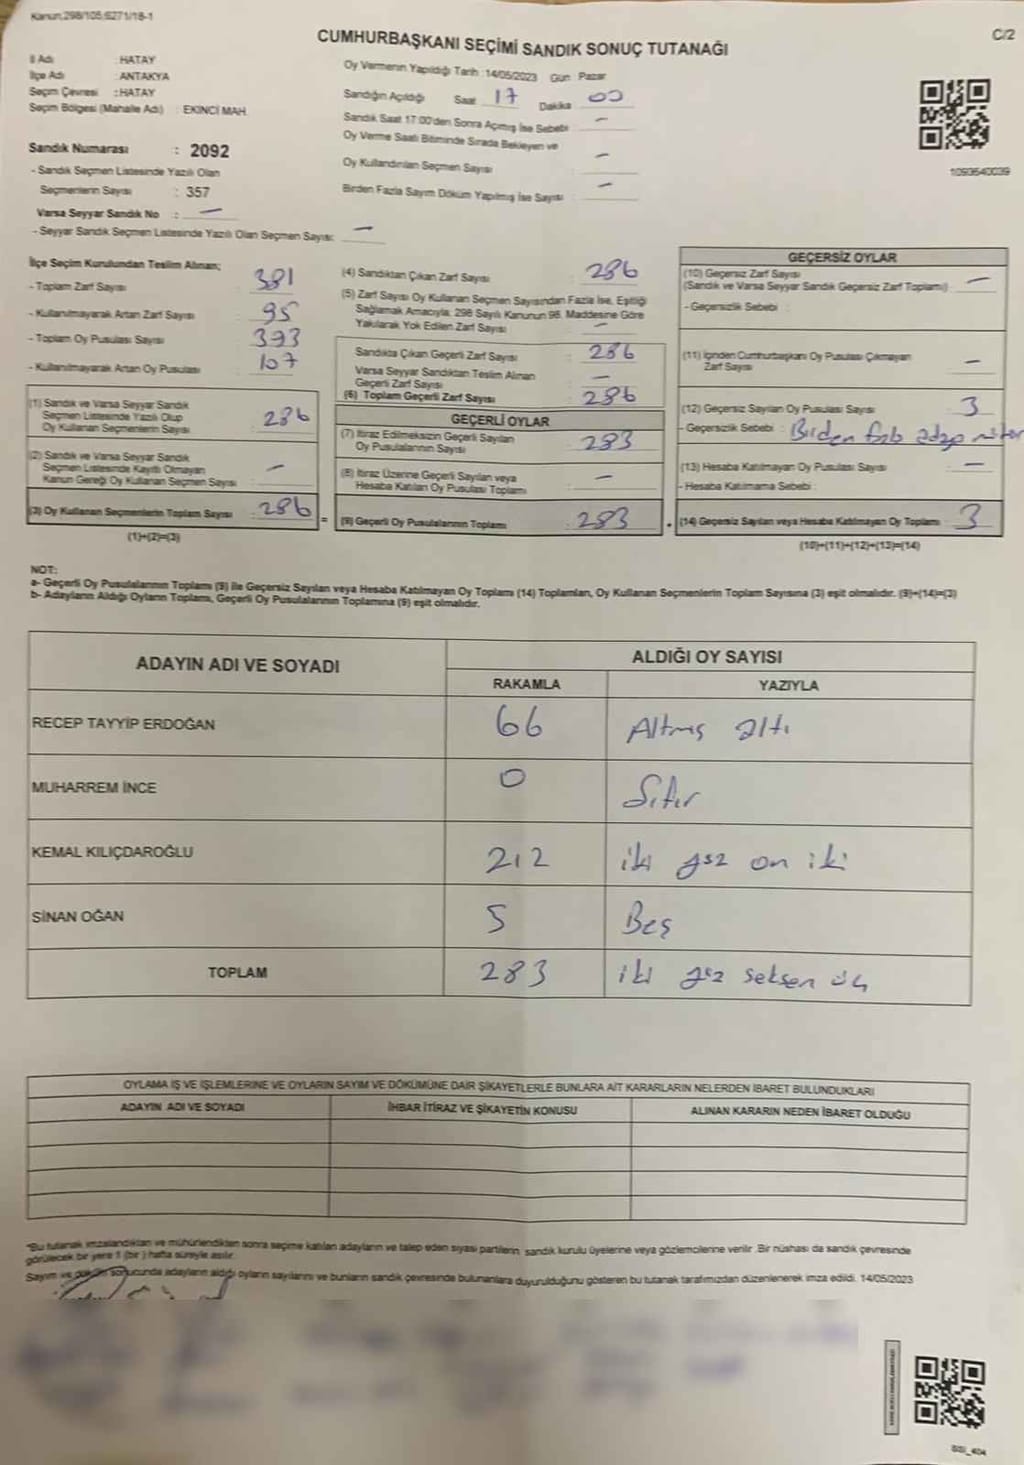 Kanun:298/105;6271/18-1
C/2
CUMHURBAŞKANI SEÇİMİ SANDIK SONUÇ TUTANAĞI
İl Adı : HATAY
İlçe Adı : ANTAKYA
Seçim Çevresi : HATAY
Seçim Bölgesi (Mahalle Adı) : EKİNCİ MAH.
Sandık Numarası : 2092
- Sandık Seçmen Listesinde Yazılı Olan
Seçmenlerin Sayısı : 357
Varsa Seyyar Sandık No : —
- Seyyar Sandık Seçmen Listesinde Yazılı Olan Seçmen Sayısı: —
Oy Vermenin Yapıldığı Tarih :14/05/2023 Gün Pazar
Sandığın Açıldığı Saat 17 Dakika 00
Sandık Saat 17:00'den Sonra Açılmış İse Sebebi : —
Oy Verme Saati Bitiminde Sırada Bekleyen ve
Oy Kullandırılan Seçmen Sayısı : —
Birden Fazla Sayım Döküm Yapılmış İse Sayısı : —
1093640039
İlçe Seçim Kurulundan Teslim Alınan;
- Toplam Zarf Sayısı : 381
- Kullanılmayarak Artan Zarf Sayısı : 95
- Toplam Oy Pusulası Sayısı : 393
- Kullanılmayarak Artan Oy Pusulası : 107
(1) Sandık ve Varsa Seyyar Sandık
Seçmen Listesinde Yazılı Olup
Oy Kullanan Seçmenlerin Sayısı : 286
(2) Sandık ve Varsa Seyyar Sandık
Seçmen Listesinde Kayıtlı Olmayan
Kanun Gereği Oy Kullanan Seçmen Sayısı : —
(3) Oy Kullanan Seçmenlerin Toplam Sayısı : 286
(1)+(2)=(3)
(4) Sandıktan Çıkan Zarf Sayısı : 286
(5) Zarf Sayısı Oy Kullanan Seçmen Sayısından Fazla İse, Eşitliği
Sağlamak Amacıyla, 298 Sayılı Kanunun 98. Maddesine Göre
Yakılarak Yok Edilen Zarf Sayısı : —
Sandıkta Çıkan Geçerli Zarf Sayısı : 286
Varsa Seyyar Sandıktan Teslim Alınan
Geçerli Zarf Sayısı : —
(6) Toplam Geçerli Zarf Sayısı : 286
GEÇERLİ OYLAR
(7) İtiraz Edilmeksizin Geçerli Sayılan
Oy Pusulalarının Sayısı : 283
(8) İtiraz Üzerine Geçerli Sayılan veya
Hesaba Katılan Oy Pusulası Toplamı : —
= (9) Geçerli Oy Pusulalarının Toplamı : 283
GEÇERSİZ OYLAR
(10) Geçersiz Zarf Sayısı
(Sandık ve Varsa Seyyar Sandık Geçersiz Zarf Toplamı) : —
- Geçersizlik Sebebi :
(11) İçinden Cumhurbaşkanı Oy Pusulası Çıkmayan
Zarf Sayısı : —
(12) Geçersiz Sayılan Oy Pusulası Sayısı : 3
- Geçersizlik Sebebi : Birden fazla aday
(13) Hesaba Katılmayan Oy Pusulası Sayısı : —
- Hesaba Katılmama Sebebi :
+ (14) Geçersiz Sayılan veya Hesaba Katılmayan Oy Toplamı : 3
(10)+(11)+(12)+(13)=(14)
NOT:
a- Geçerli Oy Pusulalarının Toplamı (9) ile Geçersiz Sayılan veya Hesaba Katılmayan Oy Toplamı (14) Toplamları, Oy Kullanan Seçmenlerin Toplam Sayısına (3) eşit olmalıdır. (9)+(14)=(3)
b- Adayların Aldığı Oyların Toplamı, Geçerli Oy Pusulalarının Toplamına (9) eşit olmalıdır.
ADAYIN ADI VE SOYADI
ALDIĞI OY SAYISI
RAKAMLA YAZIYLA
RECEP TAYYİP ERDOĞAN 66 Altmış altı
MUHARREM İNCE 0 Sıfır
KEMAL KILIÇDAROĞLU 212 iki yüz on iki
SİNAN OĞAN 5 Beş
TOPLAM 283 iki yüz seksen üç
OYLAMA İŞ VE İŞLEMLERİNE VE OYLARIN SAYIM VE DÖKÜMÜNE DAİR ŞİKAYETLERLE BUNLARA AİT KARARLARIN NELERDEN İBARET BULUNDUKLARI
ADAYIN ADI VE SOYADI İHBAR İTİRAZ VE ŞİKAYETİN KONUSU ALINAN KARARIN NEDEN İBARET OLDUĞU
*Bu tutanak imzalandıktan ve mühürlendikten sonra seçime katılan adayların ve talep eden siyasi partilerin sandık kurulu üyelerine veya gözlemcilerine verilir. Bir nüshası da sandık çevresinde
görülecek bir yere 1 (bir) hafta süreyle asılır.
Sayım ve döküm sonucunda adayların aldığı oyların sayılarını ve bunların sandık çevresinde bulunanlara duyurulduğunu gösteren bu tutanak tarafımızdan düzenlenerek imza edildi. 14/05/2023